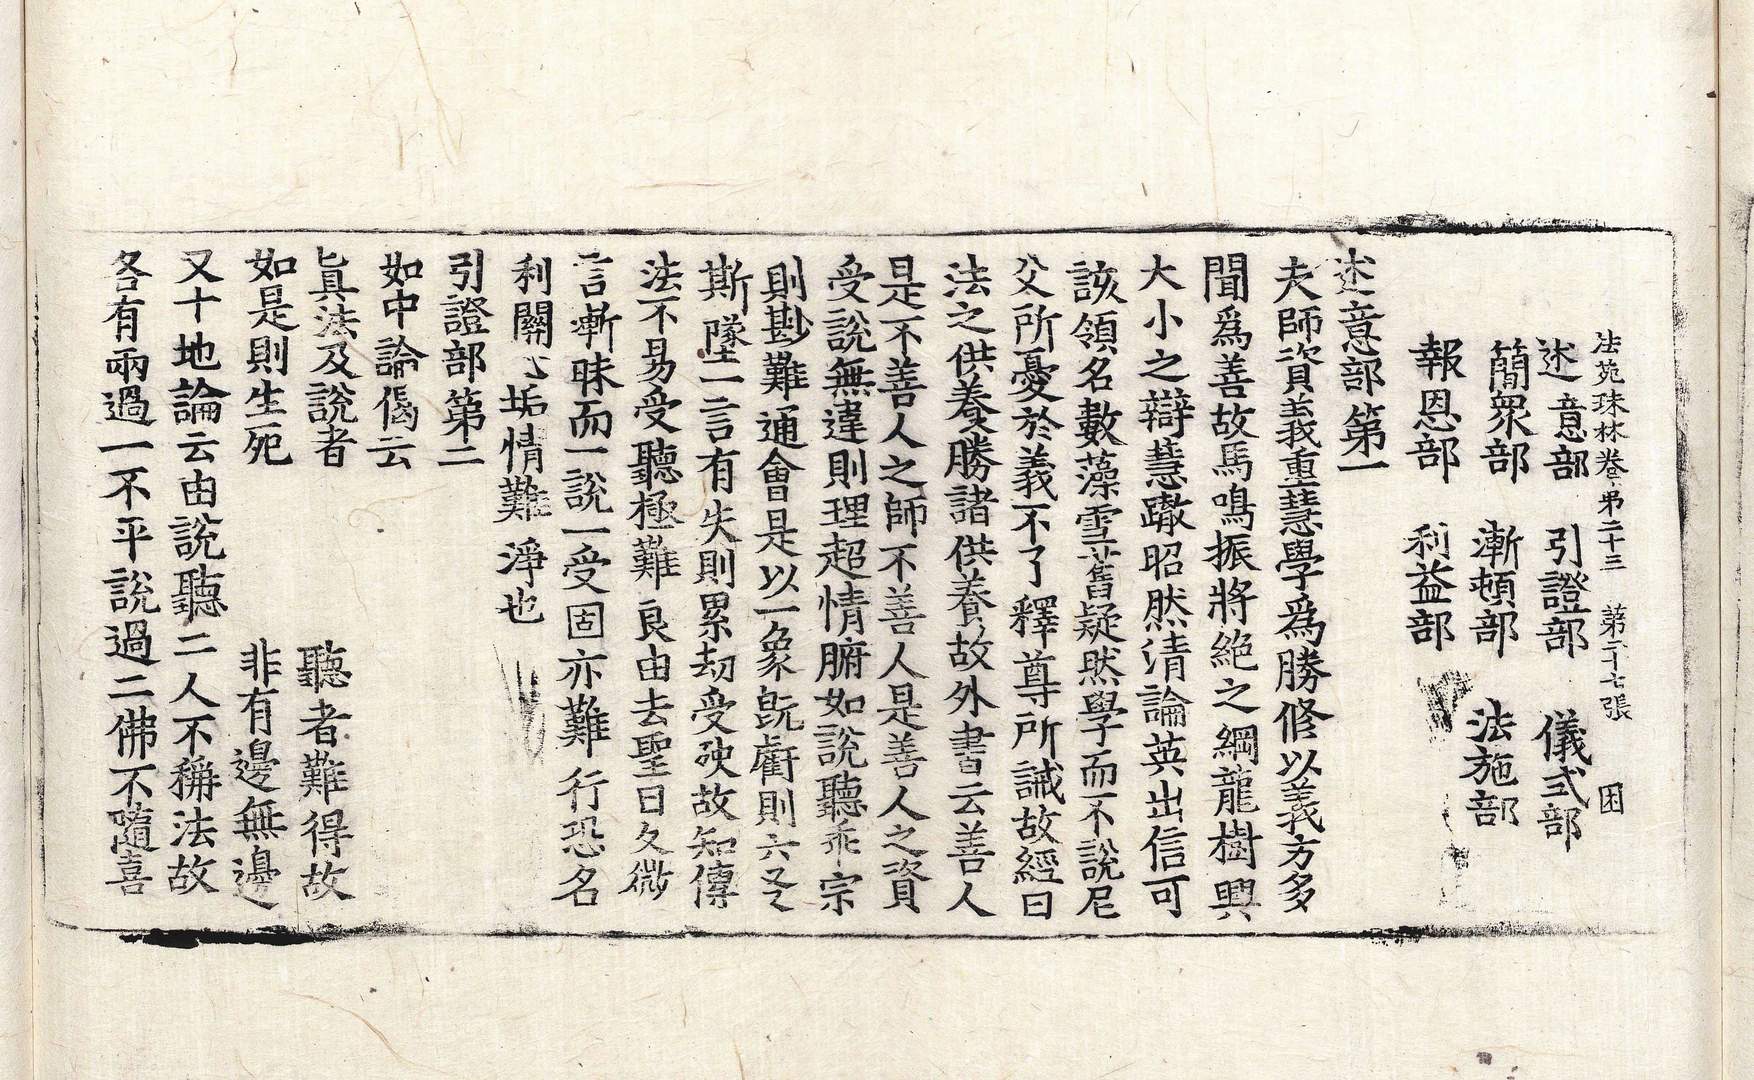 法苑珠林卷第二十三 第二十七張 困
述意部 引證部 儀式部
簡衆部 漸頓部 法施部
報恩部 利益部
述意部第一
夫師資義重慧學爲勝修以義方多
聞爲善故馬鳴振將絶之綱龍樹興
大小之辯慧蹤昭然清論英出信可
該領名數藻雪舊疑然學而不說尼
父所憂於義不了釋尊所誡故經曰
法之供養勝諸供養故外書云善人
是不善人之師不善人是善人之資
受說無違則理超情腑如說聽乖宗
則尠難通會是以一象旣虧則六爻
斯墜一言有失則累劫受殃故知傳
法不易受聽極難良由去聖日久微
言漸昧而一說一受固亦難行恐名
利關心垢情難淨也
引證部第二
如中論偈云
眞法及說者 聽者難得故
如是則生死 非有邊無邊
又十地論云由說聽二人不稱法故
各有兩過一不平說過二佛不隨喜